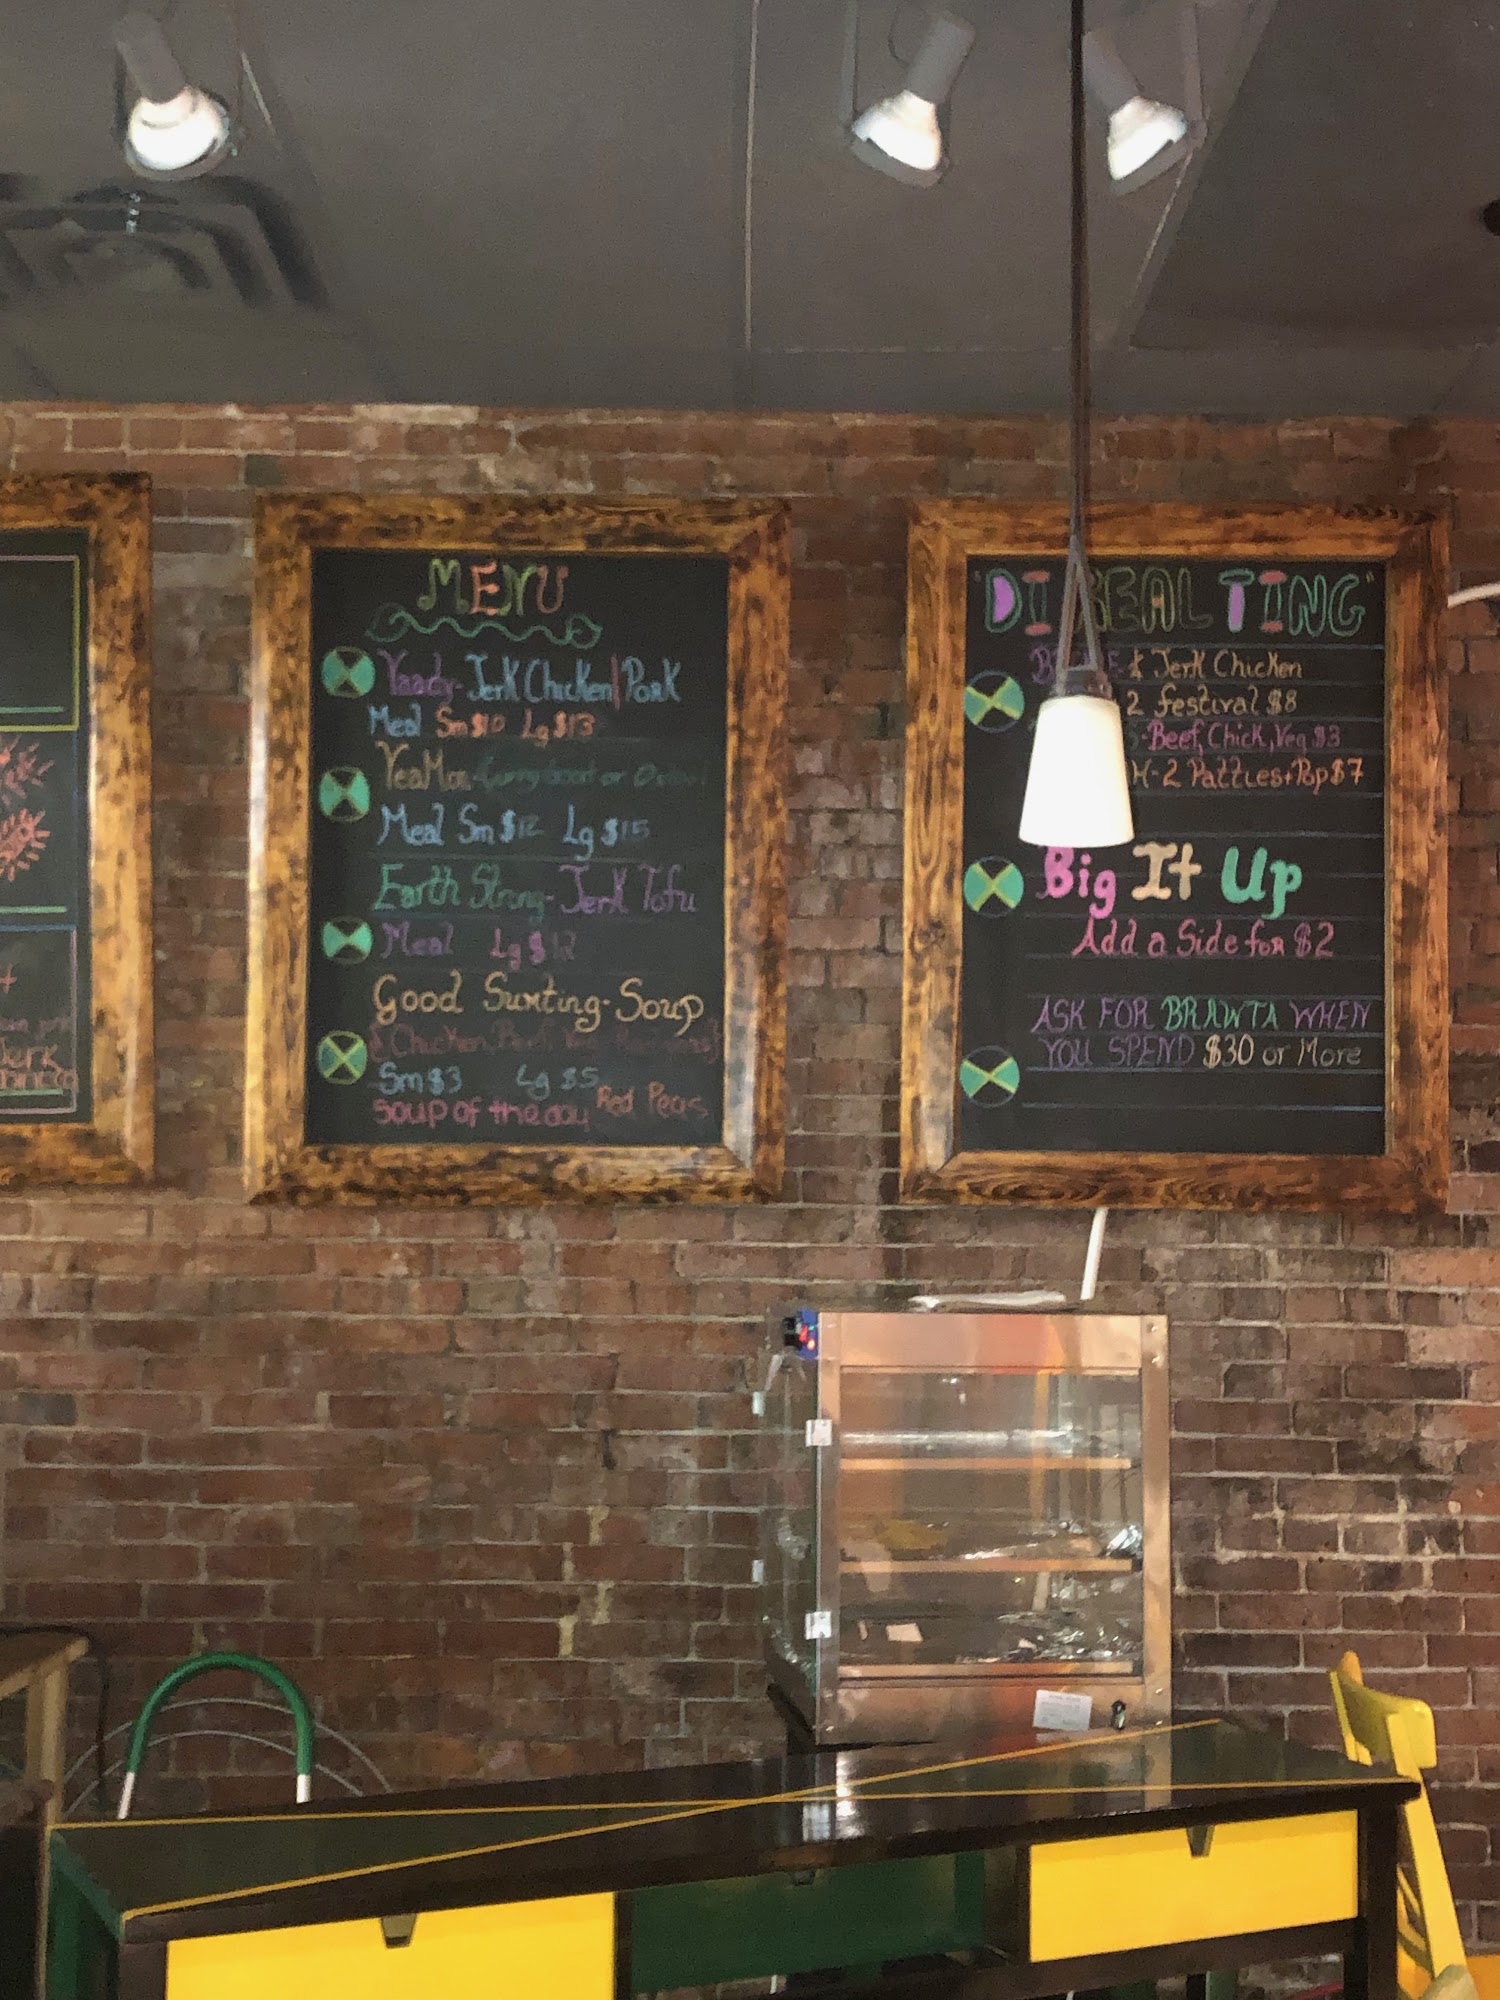 MENU
Yaady-Jerk Chicken|Pork
Meal Sm $10 Lg $13
YeaMon-
Meal Sm $12 Lg $15
Earth Strong-Jerk Tofu
Meal Lg $12
Good Sumting-Soup
Sm $3 Lg $5
Soup of the day Red Peas
"DI REAL TING"
& Jerk Chicken
2 festival $8
-Beef, Chick, Veg $3
-2 Patties+Pop $7
Big It Up
Add a Side for $2
ASK FOR BRAWTA WHEN
YOU SPEND $30 or More
Jerk